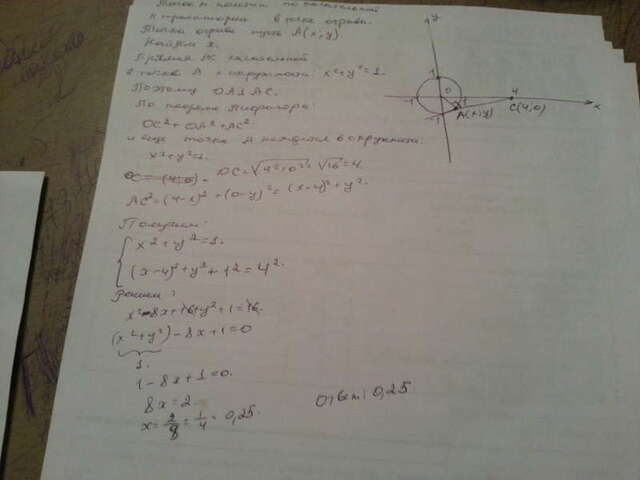 Точка м полетит по касательной
к траектории в точке отрыва.
Точка отрыва пусть A(x; y)
Найдём x.
Прямая AC касательной
в точке A к окружности x²+y²=1.
Поэтому OA⊥AC.
По теореме Пифагора:
OC²=OA²+AC².
и ещё точка A находится в окружности:
x²+y²=1
OC = (4;0) = OC=√4²+0²=√16=4.
AC²=(4-x)²+(0-y)²=(x-4)²+y².
Получим:
x²+y²=1.
(x-4)²+y²+1²=4².
Решим:
x²-8x+16+y²+1=16.
(x²+y²)-8x+1=0
1.
1-8x+1=0.
8x=2.
x=2/8=1/4=0,25.
Ответ: 0,25
y
1
0
-1
1
4
x
-1
A(x;y)
C(4;0)